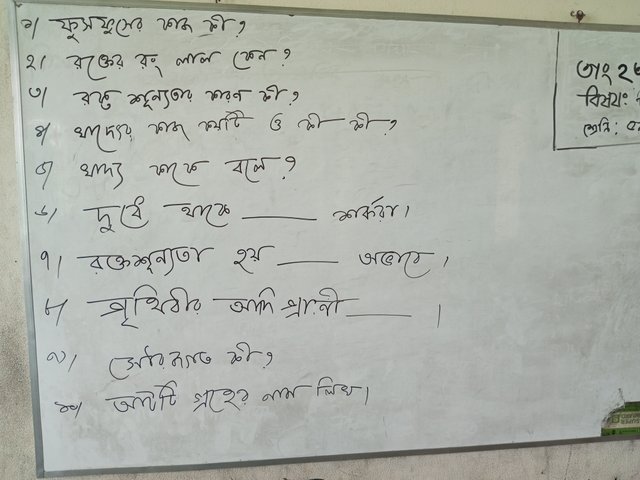 ১) ফুসফুসের কাজ কী?
২) রক্তের রং লাল কেন?
৩) রক্ত শূন্যতার কারন কী?
৪) খাদ্যের কাজ কয়টি ও কী কী?
৫) খাদ্য কাকে বলে?
৬) দুধে থাকে ______ শর্করা।
৭) রক্তশূন্যতা হয় ______ অভাবে।
৮) পৃথিবীর আদি প্রাণী ______ ।
৯) সৌরজগত কী?
১০) আটটি গ্রহের নাম লিখ।
তাং ২
বিষয়:
শ্রেণি: